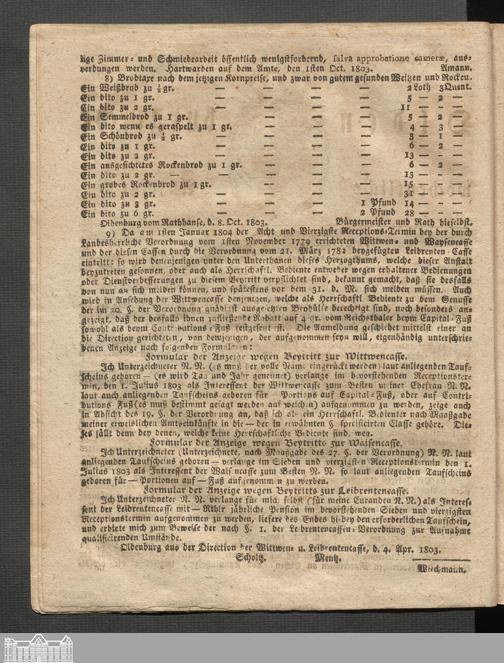 lige Zimmer= und Schmiedearbeit öffentlich wenigstfordernd, salva approbatione camerae, aus=
verdungen werden. Hartwarden auf dem Amte, den 1sten Oct. 1803. Amann.
8) Brodtaxe nach dem jetzigen Kornpreise, und zwar von gutem gesunden Weitzen und Rocken.
Ein Weißbrod zu ½ gr. — — — — 2 Loth 3 Quent.
Ein dito zu 1 gr. — — — — 5 — 2 —
Ein dito zu 2 gr. — — — — 11 — —
Ein Semmelbrod zu 1 gr. — — — — 5 — 2 —
Ein dito wenn es geraspelt zu 1 gr. — — — — 4 — 3 —
Ein Schönbrod zu ½ gr. — — — — 3 — 1 —
Ein dito zu 1 gr. — — — — 6 — 2 —
Ein dito zu 2 gr. — — — — 13 — —
Ein ausgesichtetes Rockenbrod zu 1 gr. — — — 6 — 2 —
Ein dito zu 2 gr. — — — — 13 — —
Ein grobes Rockenbrod zu 1 gr. — — — — 15 — —
Ein dito zu 2 gr. — — — — 31 — —
Ein dito zu 3 gr. — — — 1 Pfund 14 — —
Ein dito zu 6 gr. — — — 2 Pfund 28 — —
Oldenburg vom Rathhause, d. 8. Oct. 1803. Bürgermeister und Rath hieselbst.
9) Da am 1sten Januar 1804 der Acht und Vierzigste Receptions=Termin bey der durch
Landesherrliche Verordnung vom 1sten November 1779 errichteten Wittwen= und Waysencasse
und der diesen Cassen durch die Verordnung vom 21. März 1782 beygefügten Leibrenten=Casse
eintritt: so wird denenjenigen unter den Unterthanen dieses Herzogthums, welche dieser Anstalt
beyzutreten gesonnen, oder auch als Herrschaftl. Bediente entweder wegen erhaltener Bedienungen
oder Dienstverbesserungen zu diesem Beytritt verpflichtet sind, bekannt gemacht, daß sie desfalls
von nun an sich melden können, und spätestens vor dem 31. d. M. sich melden müssen. Auch
wird in Ansehung der Wittwencasse denjenigen, welche als Herrschaftl. Bediente zu dem Genusse
der im 20. §. der Verordnung gnädigst ausgesetzten Beyhülfe berechtigt sind, noch besonders an=
gezeigt, daß der desfalls ihnen zufliessende Rabatt auf gr. vom Reichsthaler beym Capital=Fuß
sowohl als beym Contributions=Fuß festgesetzt ist. Die Anmeldung geschiehet mittelst einer an
die Direction gerichteten, von demjenigen, der aufgenommen seyn will, eigenhändig unterschrie=
benen Anzeige nach folgendem Formulare:
Formular der Anzeige wegen Beytritt zur Wittwencasse.
Ich Unterzeichneter N. N. (es muß der volle Name eingerückt werden) laut anliegenden Tauf=
scheins geboren — (es wird Tag und Jahr genennet) verlange im bevorstehenden Receptionster=
min, den 1. Julius 1803 als Interessent der Wittwencasse zum Besten meiner Ehefrau N. N.
laut auch anliegenden Taufscheins geboren für — Portions auf Capital=Fuß, oder auf Contri=
butions Fuß (es muß bestimmt gesagt werden auf welchen) aufgenommen zu werden, zeige auch
in Absicht des 19. §. der Verordnung an, daß ich als ein Herrschaftl. Bedienter nach Maaßgabe
meiner erweislichen Amtseinkünfte in die — der in erwähnten § specificirten Classe gehöre. Die=
ses fällt denn bey denen, welche keine Herrschaftliche Bediente sind, weg.
Formular der Anzeige wegen Beytritts zur Waisencasse.
Ich Unterzeichneter (Unterzeichnete, nach Maaßgabe des 27. §. der Verordnung) N. N. laut
anliegenden Taufscheins geboren — verlange im Sieben und vierzigsten Receptionstermin den 1.
Julius 1803 als Interessent der Waisencasse zum Besten N. N. so laut anliegenden Taufscheins
geboren für — Portionen auf — Fuß aufgenommen zu werden.
Formular der Anzeige wegen Beytritts zur Leibrentencasse.
Ich Unterzeichneter N. N. verlange für mich selbst (für meine Curanden N. N.) als Interes=
sent der Leibrentencasse mit — Rthlr jährliche Pension im bevorstehenden Sieben und vierzigsten
Receptionstermin aufgenommen zu werden, liefere des Endes hiebey den erforderlichen Taufschein,
und erbiete mich zum Beweise der nach §. 1. der Leibrentencassen=Verordnung zur Aufnahme
qualificirenden Umstände.
Oldenburg aus der Direction der Wittwen= u. Leibrentencasse, d. 4. Apr. 1803.
Scholtz. Mentz.
Wiechmann.